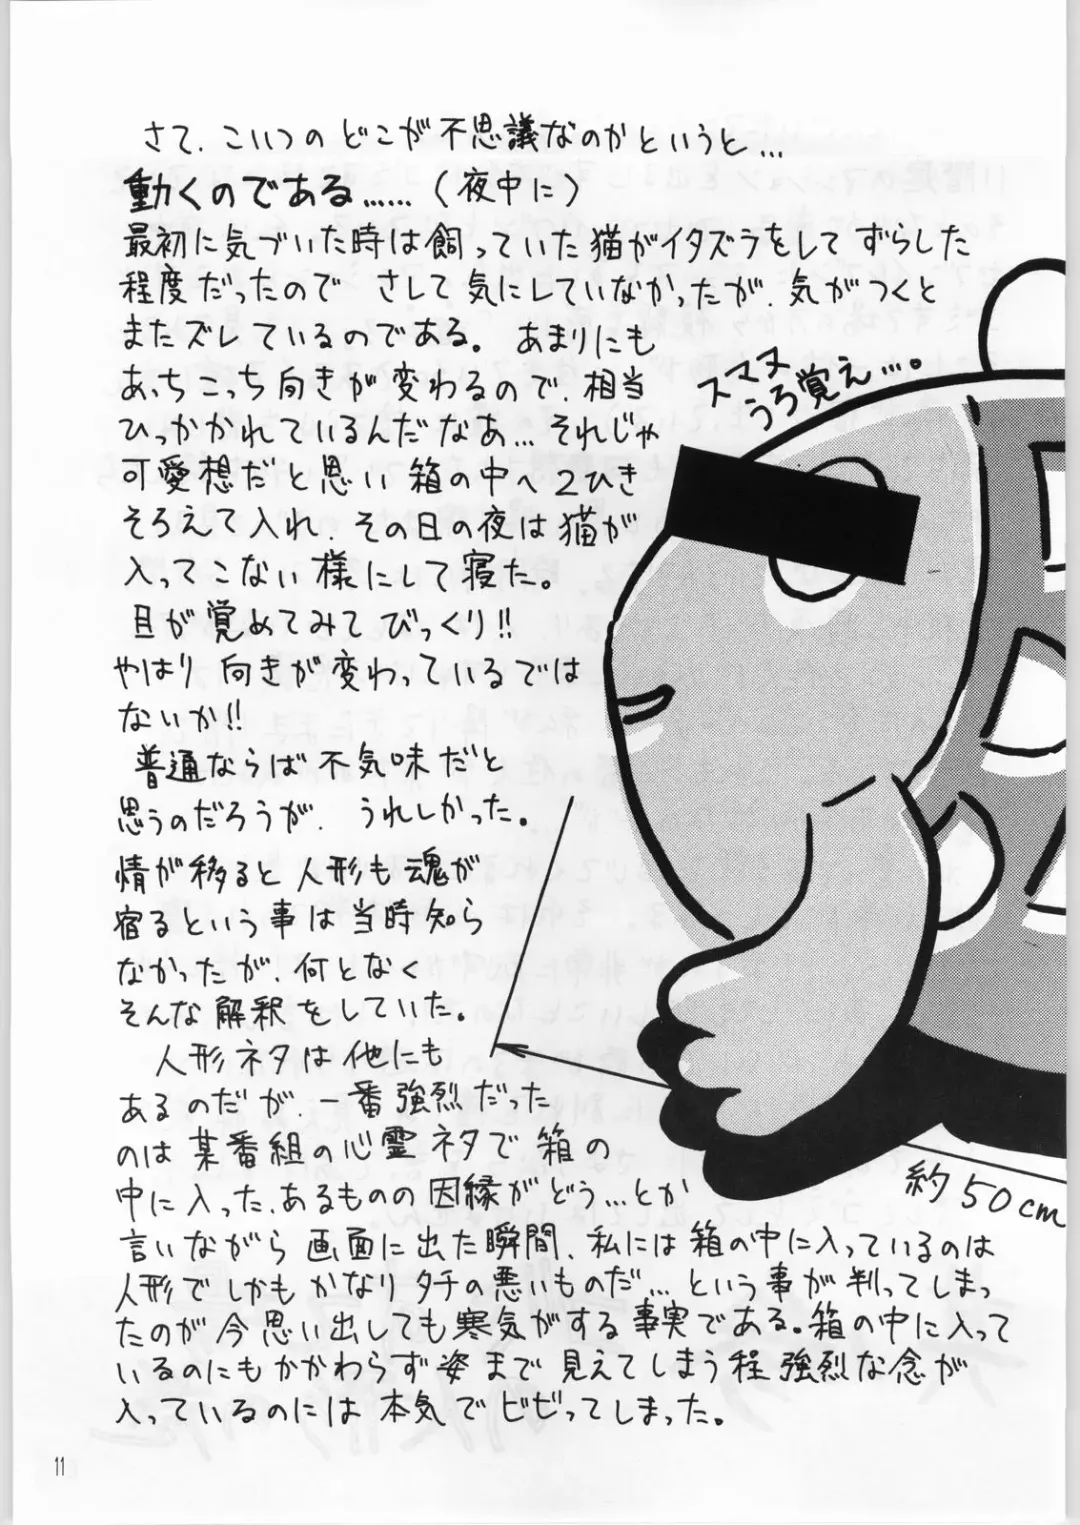 さて、こいつのどこが不思議なのかというと…
動くのである……（夜中に）
最初に気づいた時は飼っていた猫がイタズラをしてずらした
程度だったので さして気にしていなかったが、気がつくと
またズレているのである。あまりにも
あっちこっち向きが変わるので、相当
ひっかかれているんだなあ…それじゃ
可愛想だと思い箱の中へ2ひき
そろえて入れ、その日の夜は猫が
入ってこない様にして寝た。
目が覚めてみてびっくり!!
やはり向きが変わっているでは
ないか!!
普通ならば不気味だと
思うのだろうが、うれしかった。
情が移ると人形も魂が
宿るという事は当時知ら
なかったが、何となく
そんな解釈をしていた。
人形ネタは他にも
あるのだが、一番強烈だった
のは某番組の心霊ネタで箱の
中に入った、あるものの因縁がどう…とか
言いながら画面に出た瞬間、私には箱の中に入っているのは
人形でしかもかなりタチの悪いものだ…という事が判ってしまっ
たのが今思い出しても寒気がする事実である。箱の中に入って
いるのにもかかわらず姿まで見えてしまう程強烈な念が
入っているのには本気でビビってしまった。
スマヌ
うろ覚え…。
約50cm
11